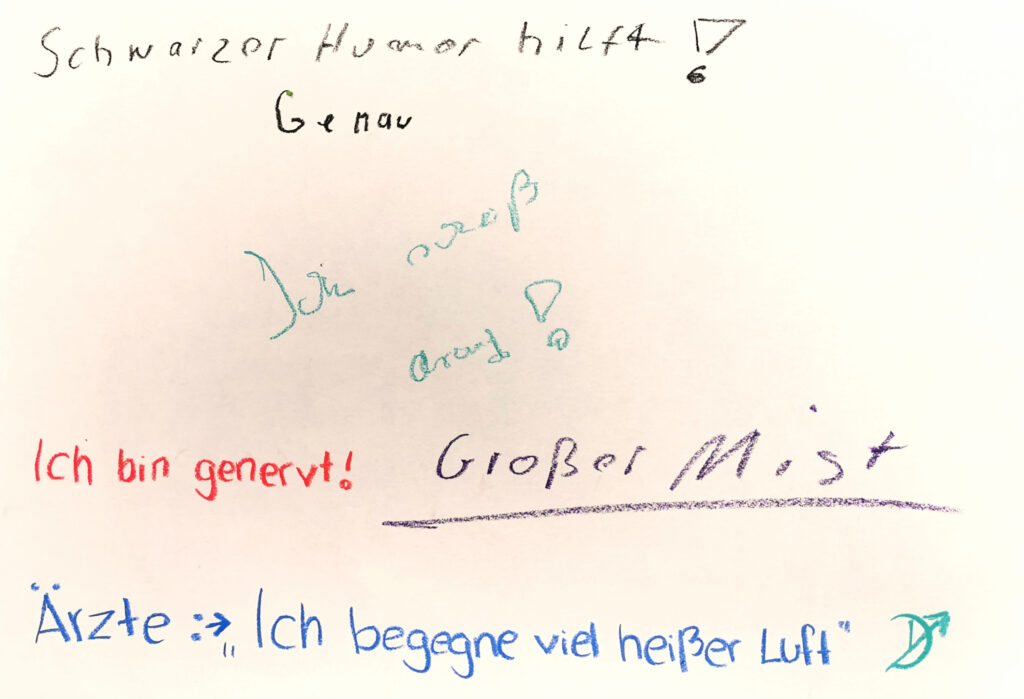 Schwarzer Humor hilft!
Genau
Ich weiß
Ich bin genervt!
Großer Mist
Ärzte :→ „Ich begegne viel heißer Luft“